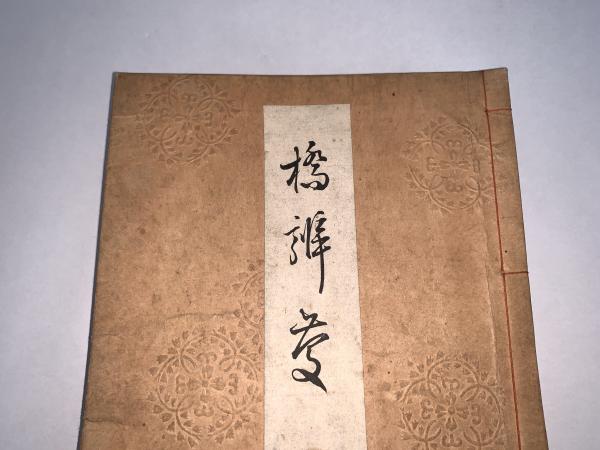 橋辨慶